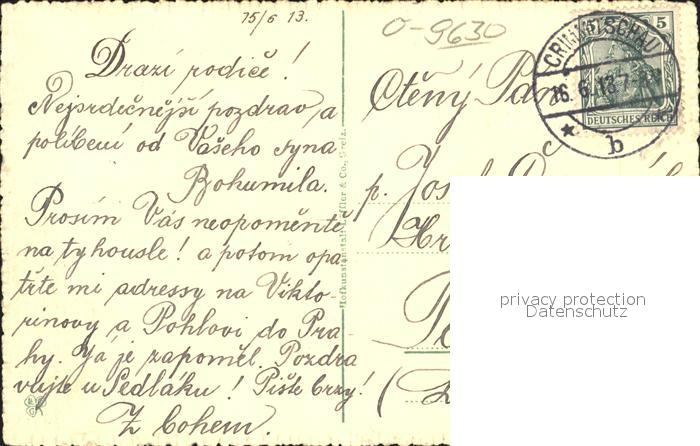 15/6 13.
O-9630
Drazí rodiče!
Nejsrdečnější pozdrav a
políbení od Vašeho syna
Bohumila.
Prosím Vás neopoměnte
na ty housle! a potom opa
třte mi adressy na Vikto-
rinovy a Pohlovi do Pra
hy. Já je zapoměl. Pozdra
vujte u Sedláku! Pište brzy!
Z Bohem.
Ctěný Pan
p. Josef
CRIMMITSCHAU
16.6.13 7-
* b
5 5
DEUTSCHES REICH
privacy protection
Datenschutz